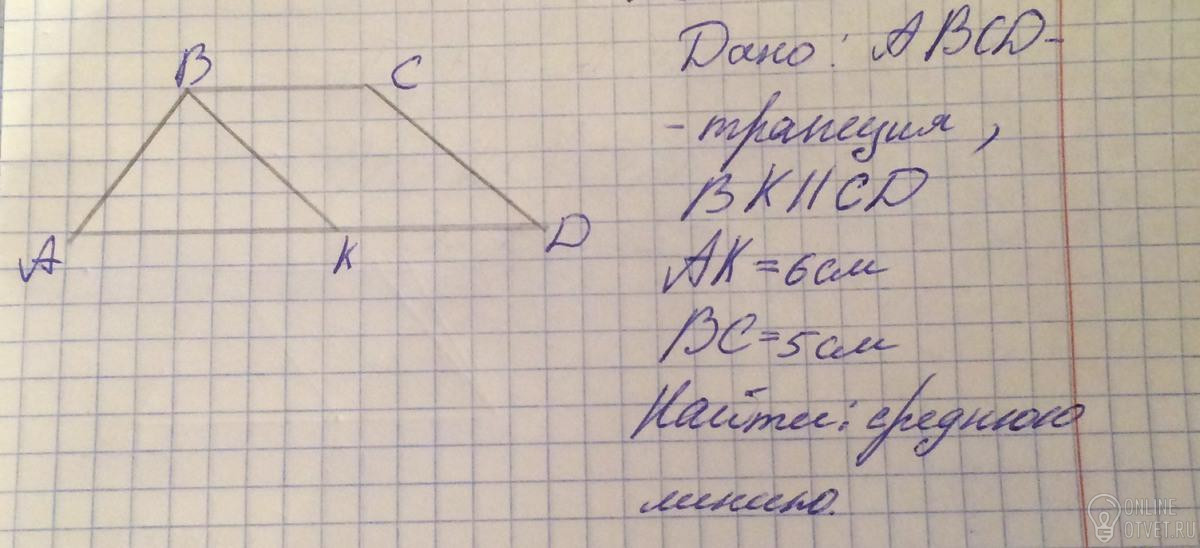 B C
A K D
Дано: ABCD-
-трапеция,
BK||CD
AK=6см
BC=5см
Найти: среднюю
линию.
ONLINE
OTVET.RU